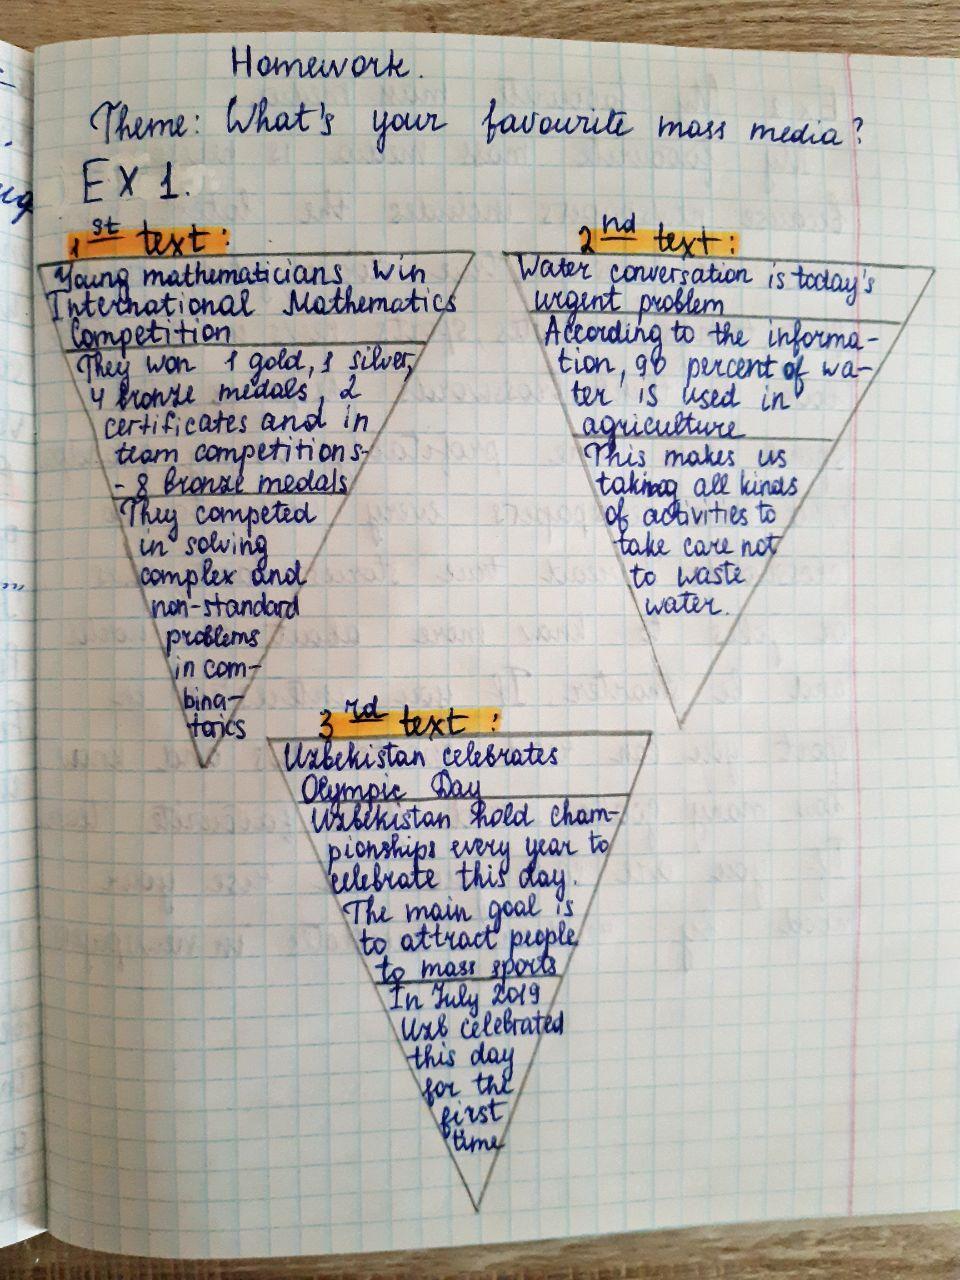 Homework.
Theme: What's your favourite mass media?
EX 1.
1st text:
Young mathematicians win
International Mathematics
Competition
They won 1 gold, 1 silver,
4 bronze medals, 2
certificates and in
team competitions-
- 8 bronze medals
They competed
in solving
complex and
non-standard
problems
in com-
bina-
torics
2nd text:
Water conversation is today's
urgent problem
According to the informa-
tion, 90 percent of wa-
ter is used in
agriculture
This makes us
taking all kinds
of activities to
take care not
to waste
water.
3rd text:
Uzbekistan celebrates
Olympic Day
Uzbekistan hold cham-
pionships every year to
celebrate this day.
The main goal is
to attract people
to mass sports
In July 2019
Uzb celebrated
this day
for the
first
time